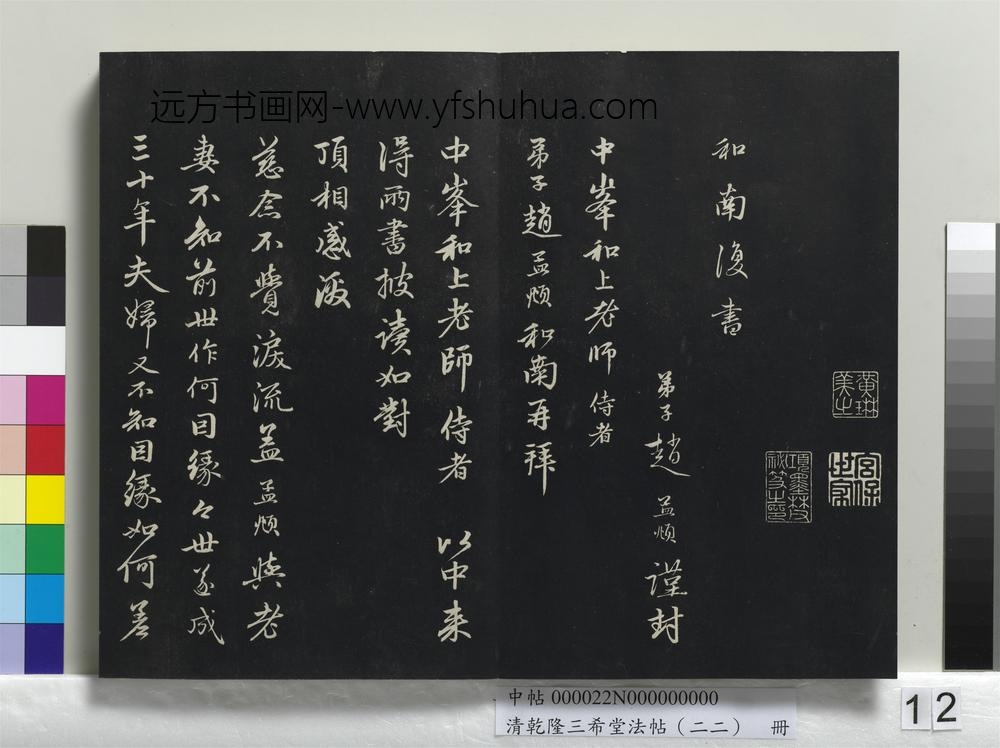 远方书画网-www.yfshuhua.com
和南復書
弟子趙孟頫謹封
中峯和上老师侍者
弟子趙孟頫和南再拜
中峯和上老師侍者 以中来
得兩書披读如對
頂相感激
慈念不覺淚流盖孟頫與老
妻不知前世作何因缘々世遂成
三十年夫婦又不知因缘如何差
黄琳美之
宫保世家
項墨林秘笈之印
中帖 000022N000000000
清乾隆三希堂法帖（二二） 冊
12